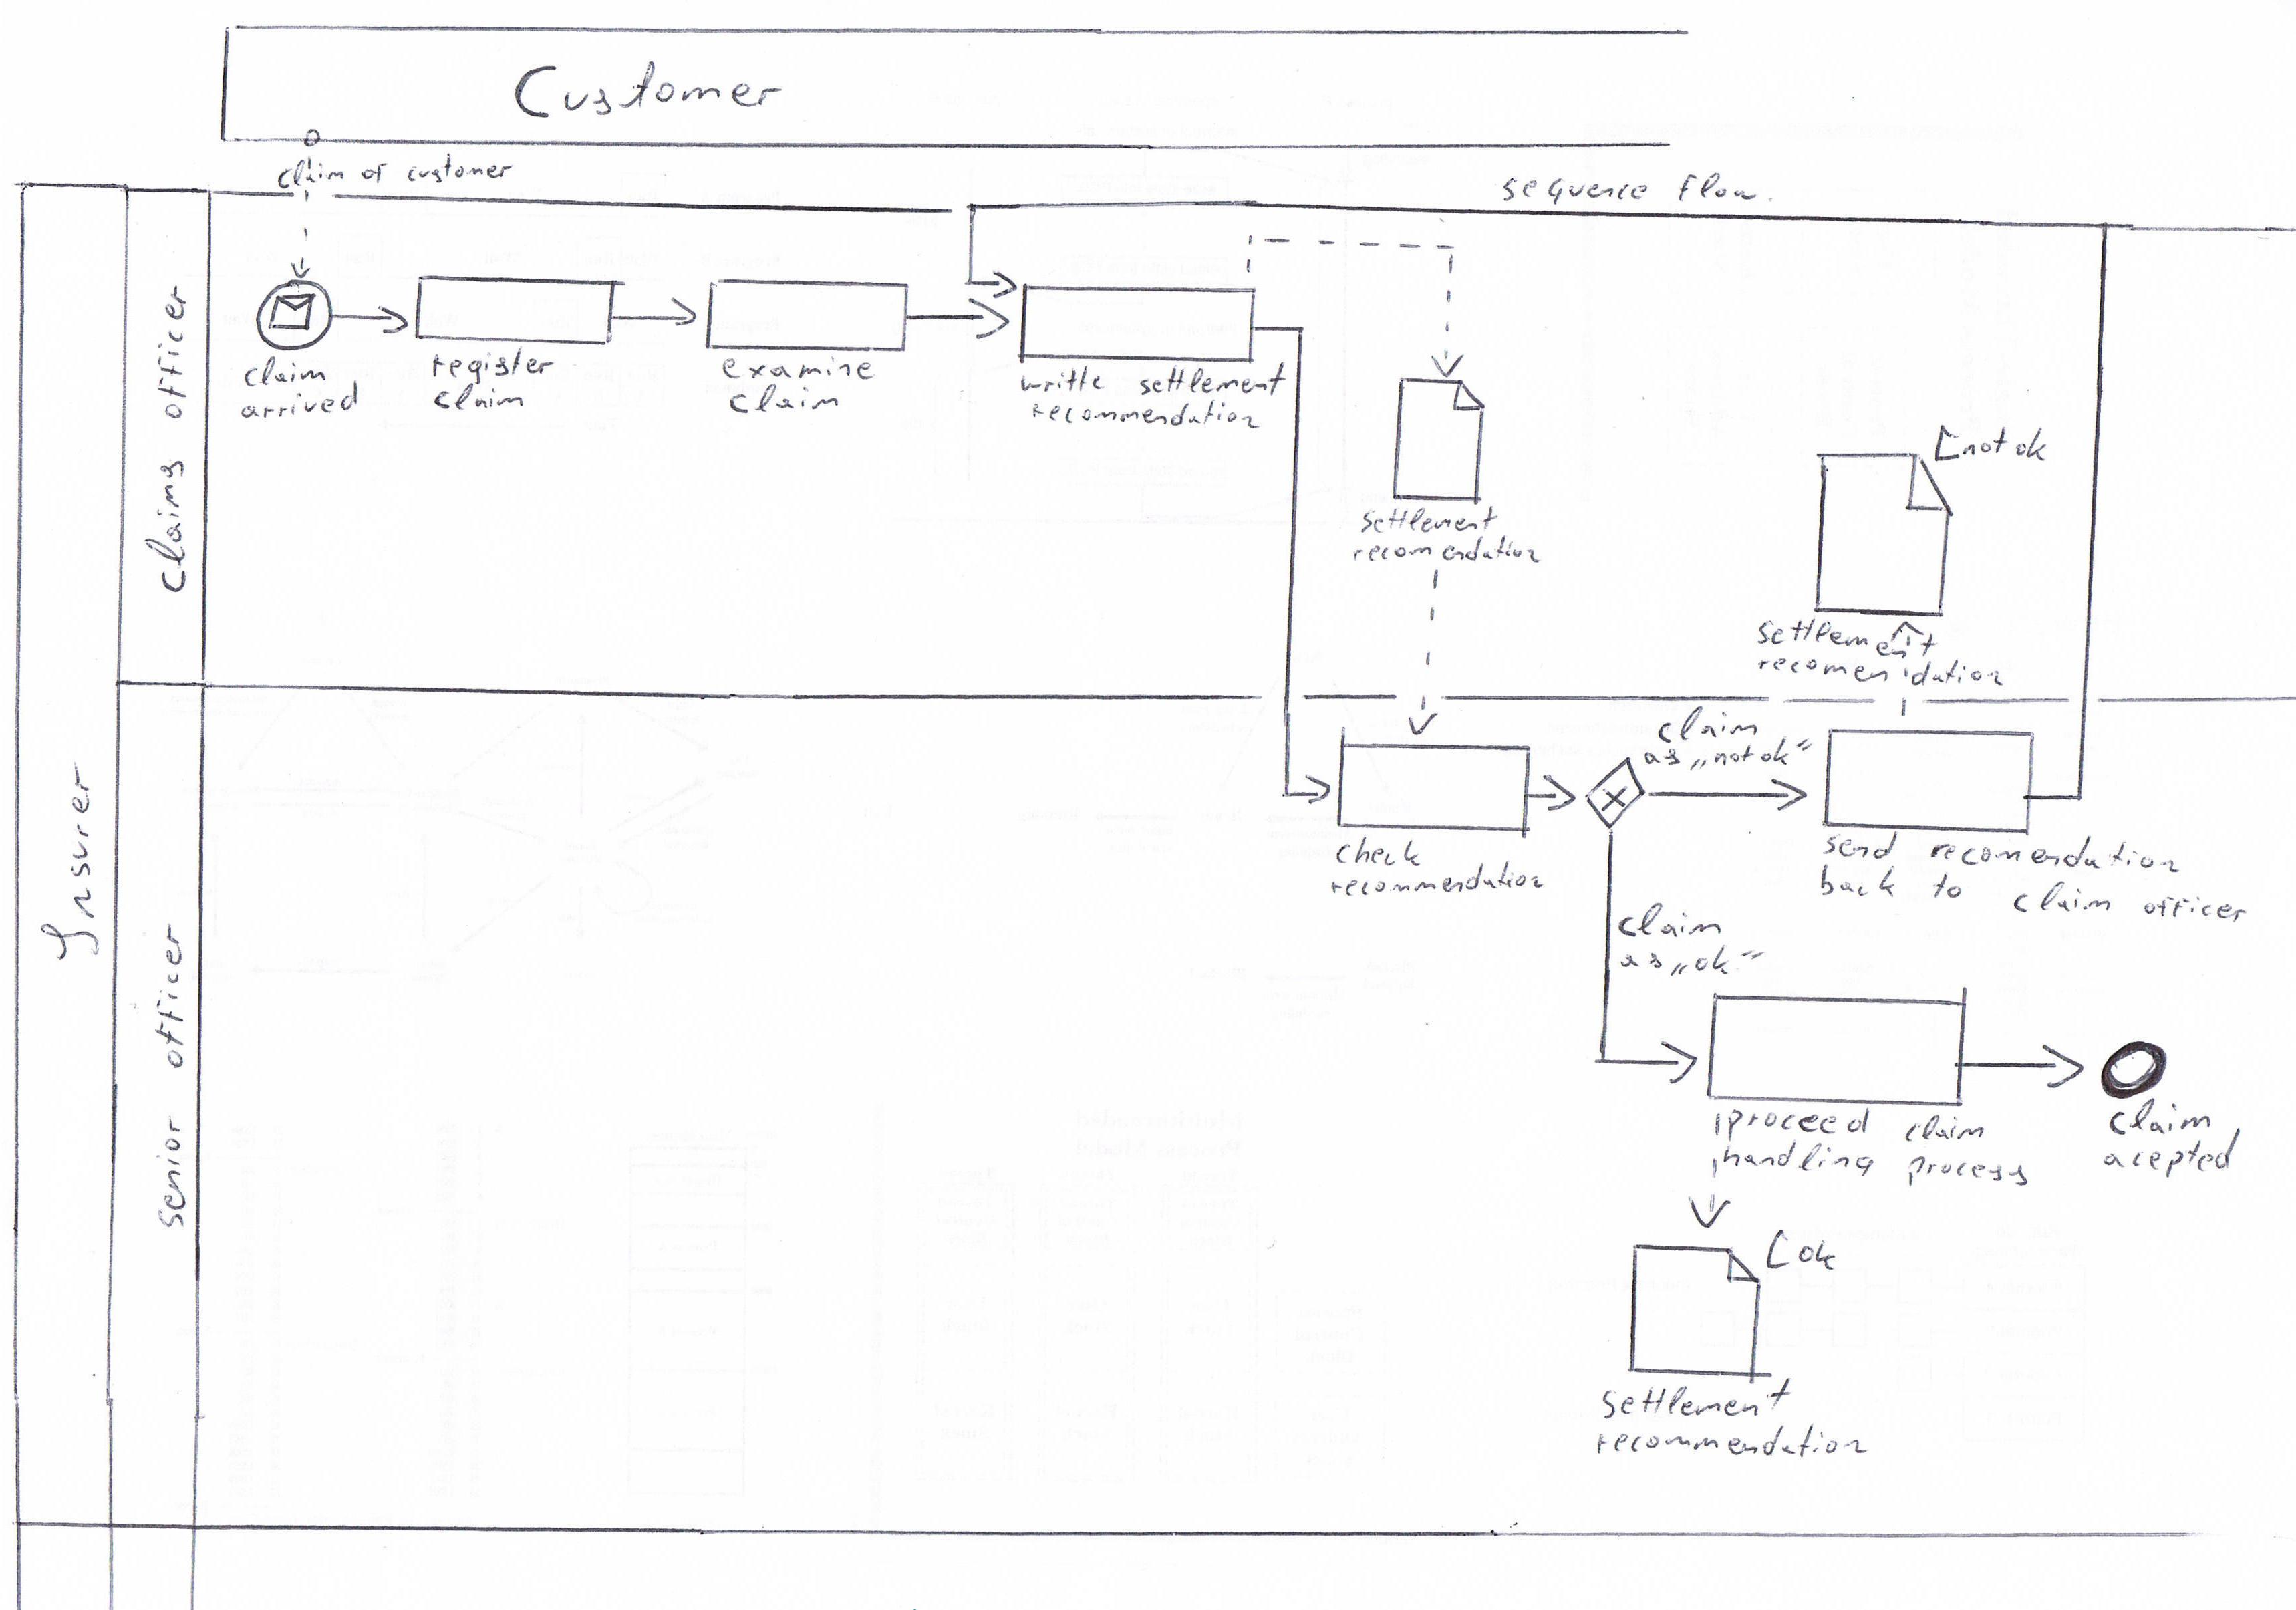 Customer
claim of customer
sequence flow.
Insurer
claims officer
senior officer
claim
arrived
register
claim
examine
claim
writte settlement
recommendation
settlement
recomendation
[not ok
settlement
recomendation
check
recommendation
claim
as „not ok"
send recomendation
back to claim officer
claim
as „ok"
proceed claim
handling process
claim
acepted
[ok
settlement
recommendation